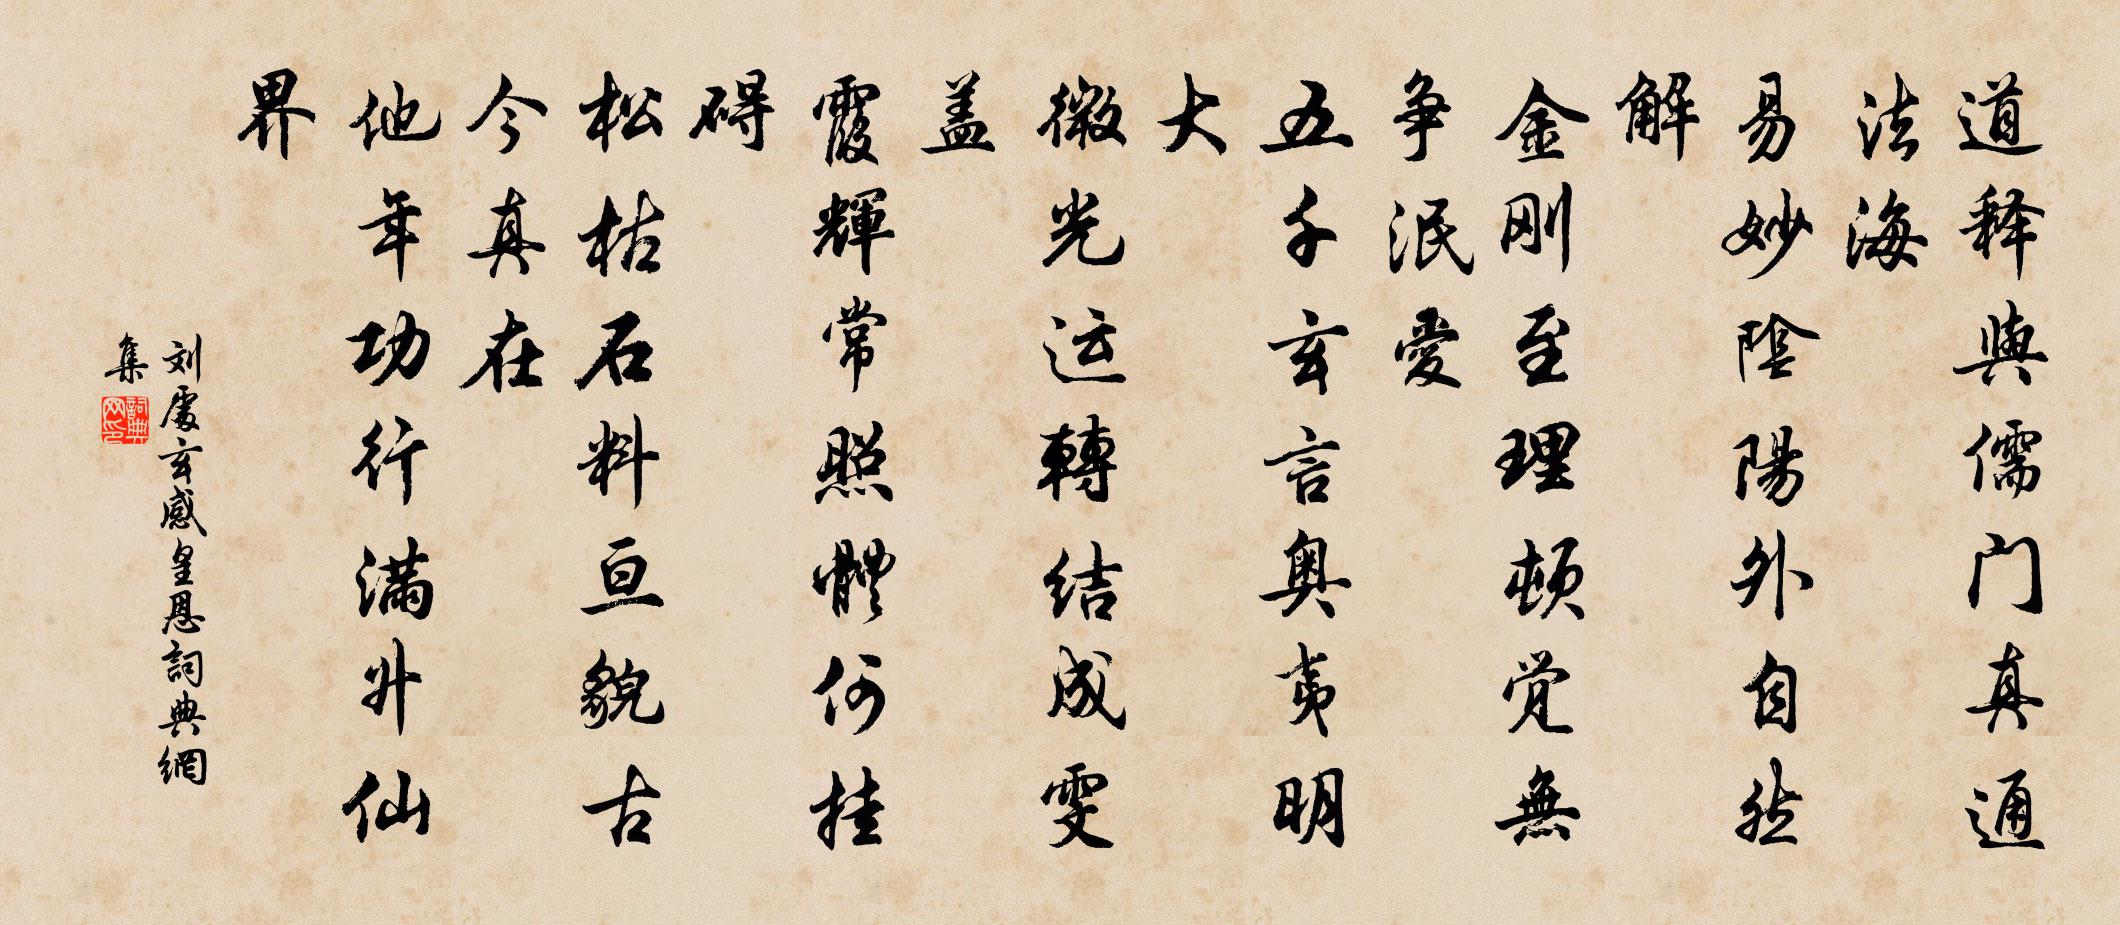 道释與儒门真通
法海
易妙陰陽外自然
解
金刚至理顿觉無
争泯愛
五千玄言奥夷明
大
微光运轉结成雯
盖
霞輝常照體何挂
碍
松枯石料亘貌古
今真在
他年功行满升仙
界
刘處玄感皇恩詞典網
集
詞典網印